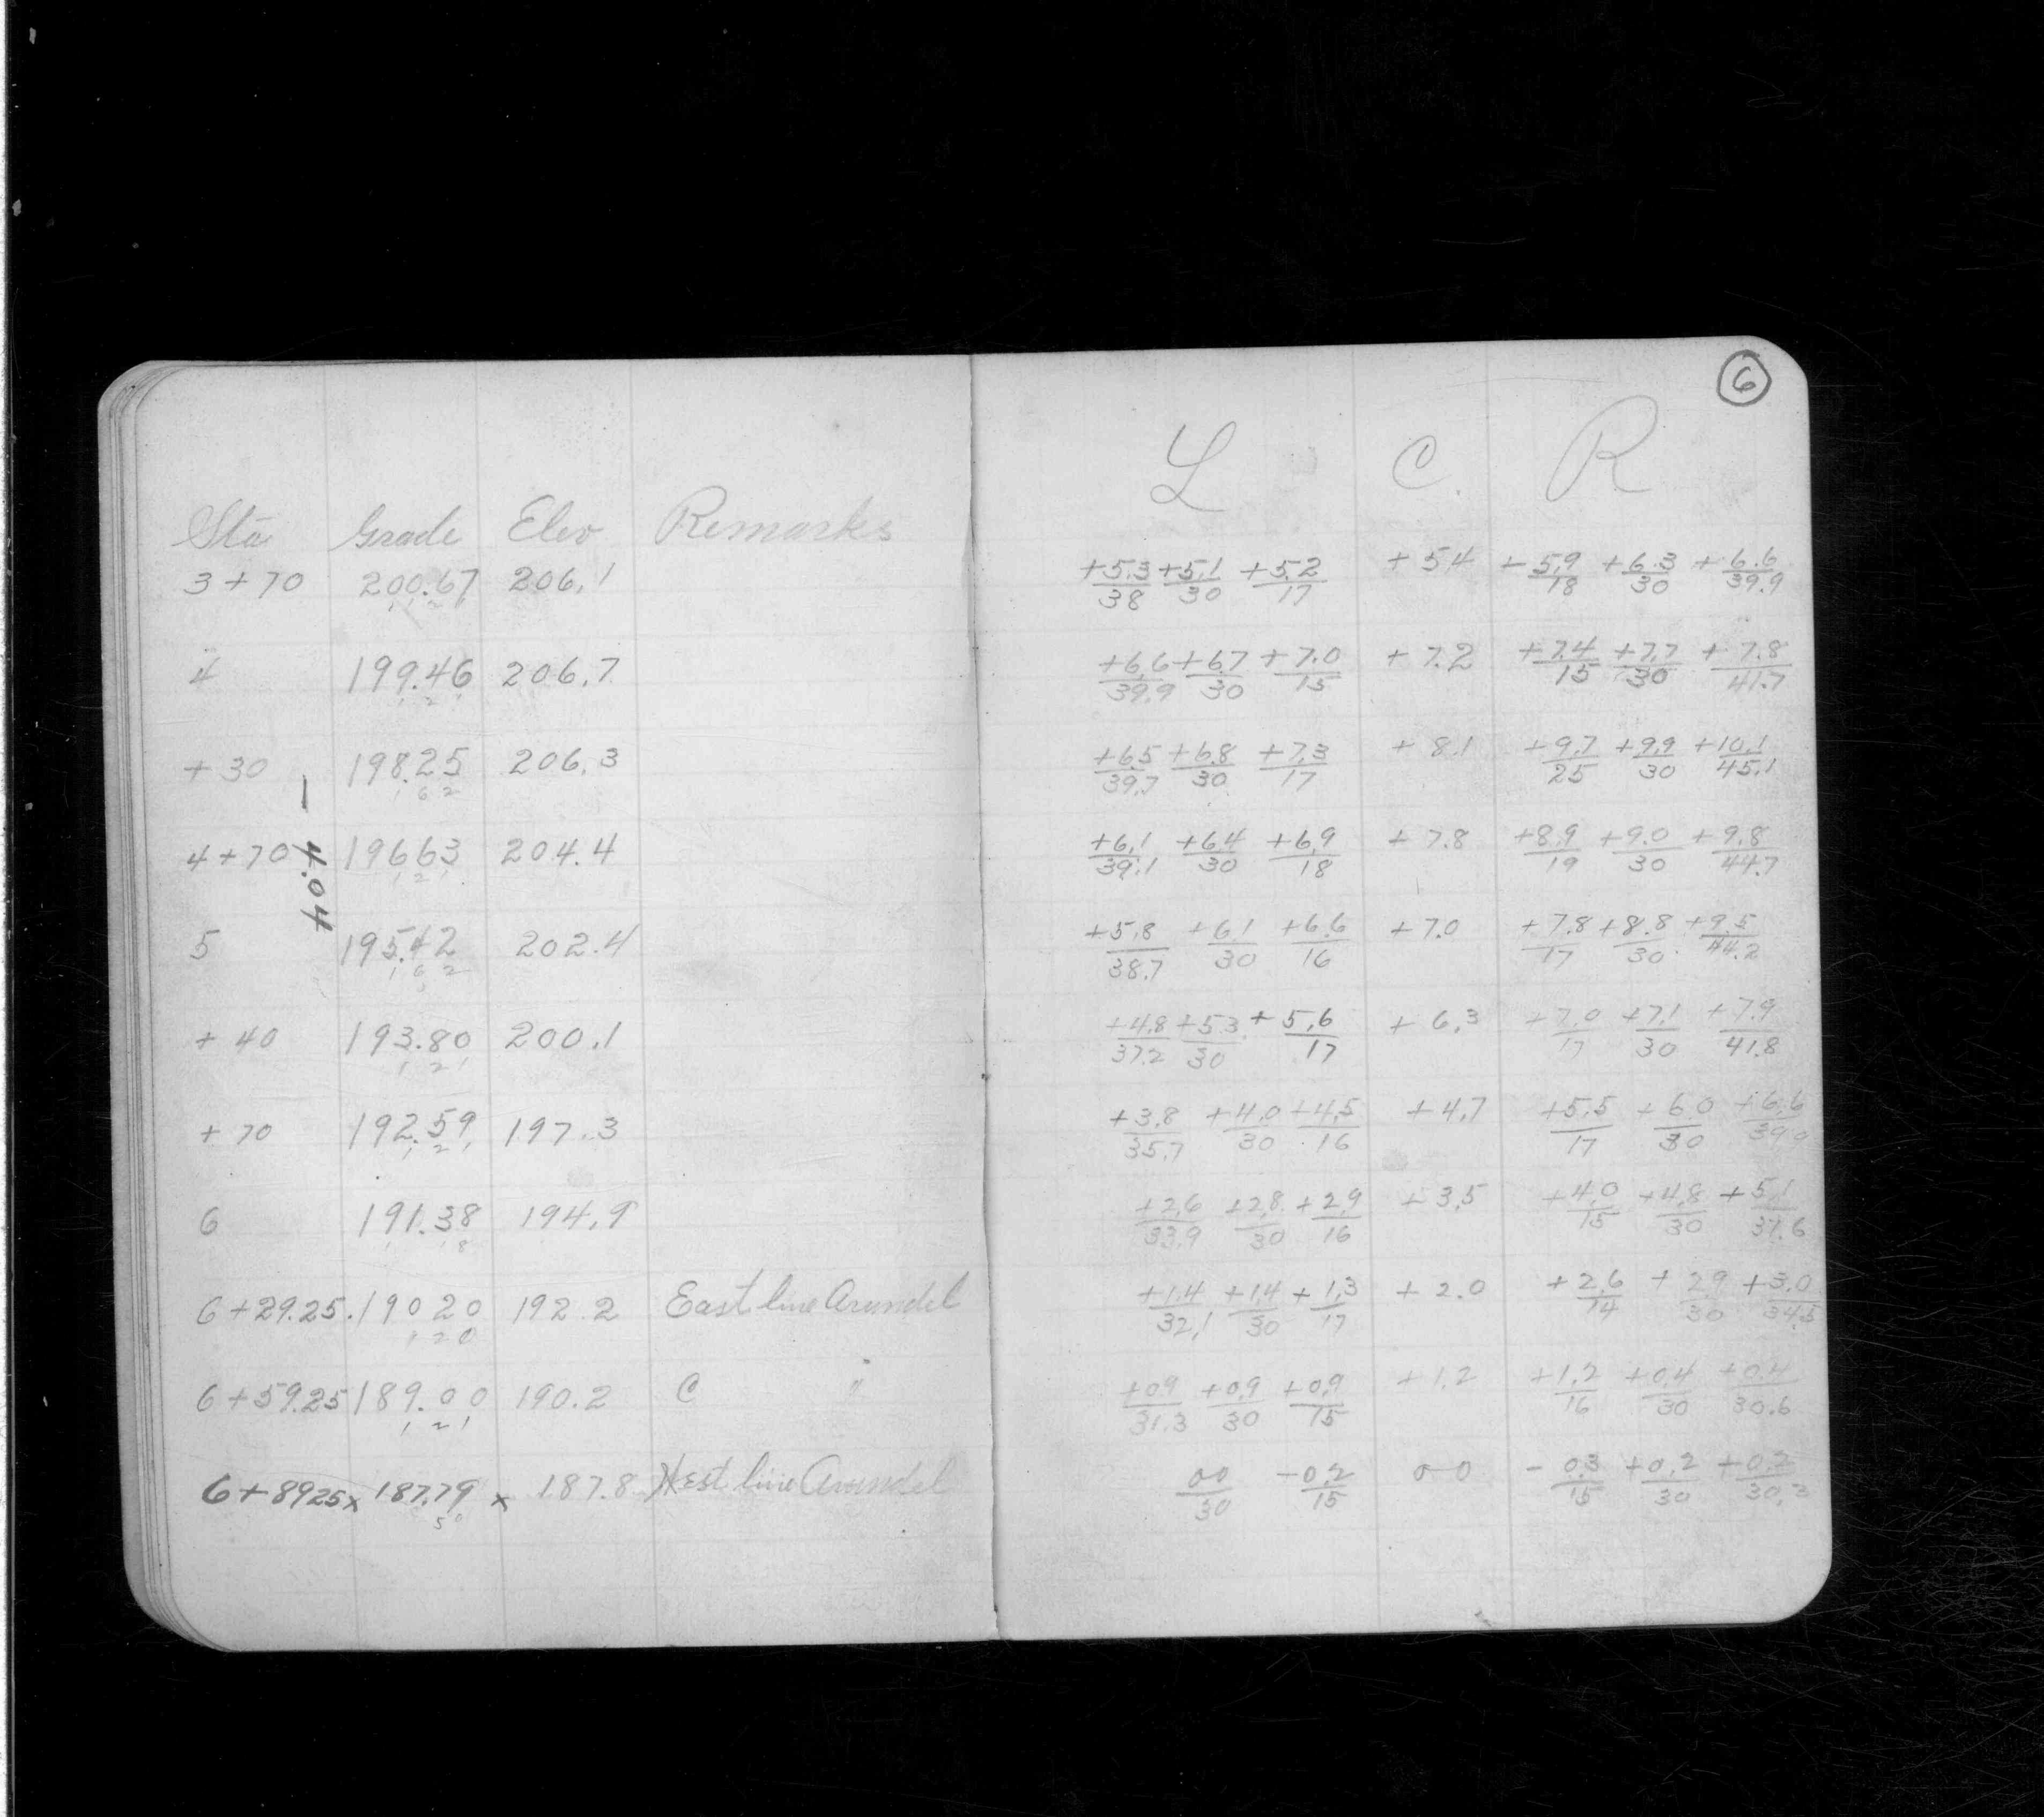 6
L C. R
Sta Grade Elev Remarks
3+70 200.67 206.1 +5.3/38 +5.1/30 +5.2/17 +5.4 +5.9/18 +6.3/30 +6.6/39.9
4 199.46 206.7 +6.6/39.9 +6.7/30 +7.0/15 +7.2 +7.4/15 +7.7/30 +7.8/41.7
+30 198.25 206.3 +6.5/39.7 +6.8/30 +7.3/17 +8.1 +9.7/25 +9.9/30 +10.1/45.1
4+70 196.63 204.4 +6.1/39.1 +6.4/30 +6.9/18 +7.8 +8.9/19 +9.0/30 +9.8/44.7
- 4.04
5 195.42 202.4 +5.8/38.7 +6.1/30 +6.6/16 +7.0 +7.8/17 +8.8/30 +9.5/44.2
+40 193.80 200.1 +4.8/37.2 +5.3/30 +5.6/17 +6.3 +7.0/17 +7.1/30 +7.9/41.8
+70 192.59 197.3 +3.8/35.7 +4.0/30 +4.5/16 +4.7 +5.5/17 +6.0/30 +6.6/39.9
6 191.38 194.9 +2.6/33.9 +2.8/30 +2.9/16 +3.5 +4.0/15 +4.8/30 +5.1/37.6
6+29.25 190.20 192.2 East line Arundel +1.4/32.1 +1.4/30 +1.3/17 +2.0 +2.6/14 +2.9/30 +3.0/34.5
6+59.25 189.00 190.2 C " +0.9/31.3 +0.9/30 +0.9/15 +1.2 +1.2/16 +0.4/30 +0.4/30.6
6+8925x 187.79 x 187.8 West line Arundel 00/30 -0.2/15 00 -0.3/15 +0.2/30 +0.2/30.3